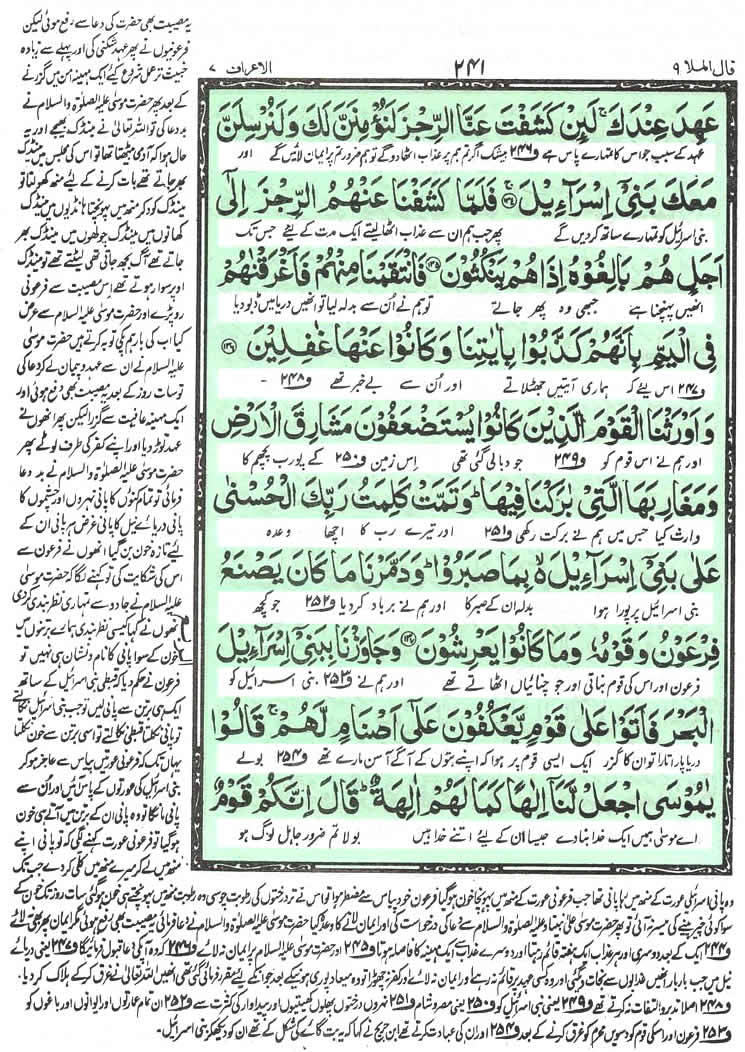 قال الملا ۹
۲۴۱
الاعراف ۷
عَهِدَ عِنْدَكَ ۚ لَىِٕنْ كَشَفْتَ عَنَّا الرِّجْزَ لَنُؤْمِنَنَّ لَكَ وَلَنُرْسِلَنَّ
عہد کے سبب جو اس کا تمہارے پاس ہے و۲۴۶ بیشک اگر تم ہم پر عذاب اٹھا دو گے تو ہم ضرور تم پر ایمان لائیں گے اور
مَعَكَ بَنِیْۤ اِسْرَآءِیْلَ ۚ۝۱۳۴ فَلَمَّا كَشَفْنَا عَنْهُمُ الرِّجْزَ اِلٰۤی
بنی اسرائیل کو تمہارے ساتھ کر دیں گے پھر جب ہم ان سے عذاب اٹھا لیتے ایک مدت کے لیئے جس تک
اَجَلٍ هُمْ بٰلِغُوْهُ اِذَا هُمْ یَنْكُثُوْنَ ۝۱۳۵ فَانْتَقَمْنَا مِنْهُمْ فَاَغْرَقْنٰهُمْ
انھیں پہنچنا ہے جبھی وہ پھر جاتے تو ہم نے اُن سے بدلہ لیا تو انھیں دریا میں ڈبو دیا
فِی الْیَمِّ بِاَنَّهُمْ كَذَّبُوْا بِاٰیٰتِنَا وَكَانُوْا عَنْهَا غٰفِلِیْنَ ۝۱۳۶
و۲۴۷ اس لیئے کہ ہماری آیتیں جھٹلاتے اور اُن سے بےخبر تھے و۲۴۸ -
وَاَوْرَثْنَا الْقَوْمَ الَّذِیْنَ كَانُوْا یُسْتَضْعَفُوْنَ مَشَارِقَ الْاَرْضِ
اور ہم نے اس قوم کو و۲۴۹ جو دبا لی گئی تھی اس زمین و۲۵۰ کے پورب پچھم کا
وَمَغَارِبَهَا الَّتِیْ بٰرَكْنَا فِیْهَا ؕ وَتَمَّتْ كَلِمَتُ رَبِّكَ الْحُسْنٰی
وارث کیا جس میں ہم نے برکت رکھی و۲۵۱ اور تیرے رب کا اچھا وعدہ
عَلٰی بَنِیْۤ اِسْرَآءِیْلَ ۙ۬ بِمَا صَبَرُوْا ؕ وَدَمَّرْنَا مَا كَانَ یَصْنَعُ
بنی اسرائیل پر پورا ہوا بدلہ ان کے صبر کا اور ہم نے برباد کر دیا و۲۵۲ جو کچھ
فِرْعَوْنُ وَقَوْمُهٗ وَمَا كَانُوْا یَعْرِشُوْنَ ۝۱۳۷ وَجٰوَزْنَا بِبَنِیْۤ اِسْرَآءِیْلَ
فرعون اور اس کی قوم بناتی اور جو چنائیاں اٹھاتے تھے اور ہم نے و۲۵۳ بنی اسرائیل کو
الْبَحْرَ فَاَتَوْا عَلٰی قَوْمٍ یَّعْكُفُوْنَ عَلٰۤی اَصْنَامٍ لَّهُمْ ۚ قَالُوْا
دریا پار اتارا تو ان کا گزر ایک ایسی قوم پر ہوا کہ اپنے بتوں کے آگے آسن مارے تھے و۲۵۴ بولے
یٰمُوْسَی اجْعَلْ لَّنَاۤ اِلٰهًا كَمَا لَهُمْ اٰلِهَةٌ ؕ قَالَ اِنَّكُمْ قَوْمٌ
اے موسیٰ ہمیں ایک خدا بنا دے جیسا ان کے لیئے اتنے خدا ہیں بولا تم ضرور جاہل لوگ ہو
یہ مصیبت بھی حضرت کی دعا سے رفع ہوئی لیکن
فرعونیوں نے پھر عہد شکنی کی اور پہلے سے زیادہ
خبیث تر عمل شروع کیئے ایک مہینہ امن میں گزرنے
کے بعد پھر حضرت موسیٰ علیہ الصلوٰۃ والسلام نے
بد دعا کی تو اللہ تعالیٰ نے مینڈک بھیجے اور یہ
حال ہوا کہ آدمی بیٹھتا تھا تو اس کی مجلس میں مینڈک
بھر جاتے تھے بات کرنے کے لیئے منھ کھولتا تو
مینڈک کود کر منھ میں پہونچتا ہانڈیوں میں مینڈک
کھانوں میں مینڈک چولھوں میں مینڈک بھر
جاتے تھے آگ بجھ جاتی تھی لیٹتے تھے تو مینڈک
اوپر سوار ہوتے تھے اس مصیبت سے فرعونی
رو پڑے اور حضرت موسیٰ علیہ السلام سے عرض
کیا اب کی بار ہم پکی توبہ کرتے ہیں حضرت موسیٰ
علیہ السلام نے ان سے عہد و پیمان لے کر دعا کی
تو سات روز کے بعد یہ مصیبت بھی دفع ہوئی اور
ایک مہینہ عافیت سے گزرا لیکن پھر انھوں نے
عہد توڑ دیا اور اپنے کفر کی طرف لوٹے پھر
حضرت موسیٰ علیہ الصلوٰۃ والسلام نے بد دعا
فرمائی تو تمام کنوؤں کا پانی نہروں اور چشموں کا
پانی دریائے نیل کا پانی غرض ہر پانی ان کے
لیئے تازہ خون بن گیا انھوں نے فرعون سے
اس کی شکایت کی تو کہنے لگا کہ حضرت موسیٰ
علیہ السلام نے جادو سے تمہاری نظر بندی کر دی
انھوں نے کہا کیسی نظر بندی ہمارے برتنوں میں
خون کے سوا پانی کا نام و نشان ہی نہیں تو
فرعون نے حکم دیا کہ قبطی بنی اسرائیل کے ساتھ
ایک ہی برتن سے پانی لیں تو جب بنی اسرائیل نکالتے
تو پانی نکلتا قبطی نکالتے تو اسی برتن سے خون نکلتا
یہاں تک کہ فرعونی عورتیں پیاس سے عاجز ہو کر
بنی اسرائیل کی عورتوں کے پاس آئیں اور اُن سے
پانی مانگا تو وہ پانی ان کے برتن میں آتے ہی خون
ہو گیا تو فرعونی عورت کہنے لگی کہ تو پانی اپنے
منھ میں لے کر میرے منھ میں کلی کر دے جب تک
وہ پانی اسرائیلی عورت کے منھ میں رہا پانی تھا جب فرعونی عورت کے منھ میں پہونچا خون ہو گیا فرعون خود پیاس سے مضطر ہوا تو اس نے تر درختوں کی رطوبت چوسی وہ رطوبت منھ میں پہونچتے ہی خون ہو گئی سات روز تک خون کے
سوا کوئی چیز پینے کی میسر نہ آئی تو پھر حضرت موسیٰ علیٰ نبینا وعلیہ الصلوٰۃ والسلام سے دعا کی درخواست کی اور ایمان لانے کا وعدہ کیا حضرت موسیٰ علیہ الصلوٰۃ والسلام نے دعا فرمائی یہ مصیبت بھی رفع ہوئی مگر ایمان پھر بھی نہ لائے
و۲۴۴ ایک کے بعد دوسری اور ہر عذاب ایک ہفتہ قائم رہتا اور دوسرے عذاب سے ایک مہینہ کا فاصلہ ہوتا و۲۴۵ اور حضرت موسیٰ علیہ السلام پر ایمان نہ لائے و۲۴۶ کہ وہ آپ کی دعا قبول فرمائیگا و۲۴۷ یعنی دریائے
نیل میں جب بار بار انھیں عذابوں سے نجات دی گئی اور وہ کسی عہد پر قائم نہ رہے اور ایمان نہ لائے اور کفر نہ چھوڑا تو وہ میعاد پوری ہونیکے بعد جو ان کے لیئے مقرر فرمائی گئی تھی انھیں اللہ تعالیٰ نے غرق کر کے ہلاک کر دیا۔
و۲۴۸ اصلا تدبر والتفات نہ کرتے تھے و۲۴۹ یعنی بنی اسرائیل کو و۲۵۰ یعنی مصر و شام و۲۵۱ نہروں درختوں پھلوں کھیتیوں اور پیداوار کی کثرت سے و۲۵۲ ان تمام عمارتوں اور ایوانوں اور باغوں کو
و۲۵۳ فرعون اور اسکی قوم کو دسویں محرم کو غرق کرنے کے بعد و۲۵۴ اور ان کی عبادت کرتے تھے ابن جریج نے کہا کہ یہ بت گائے کی شکل کے تھے ان کو دیکھ کر بنی اسرائیل۔